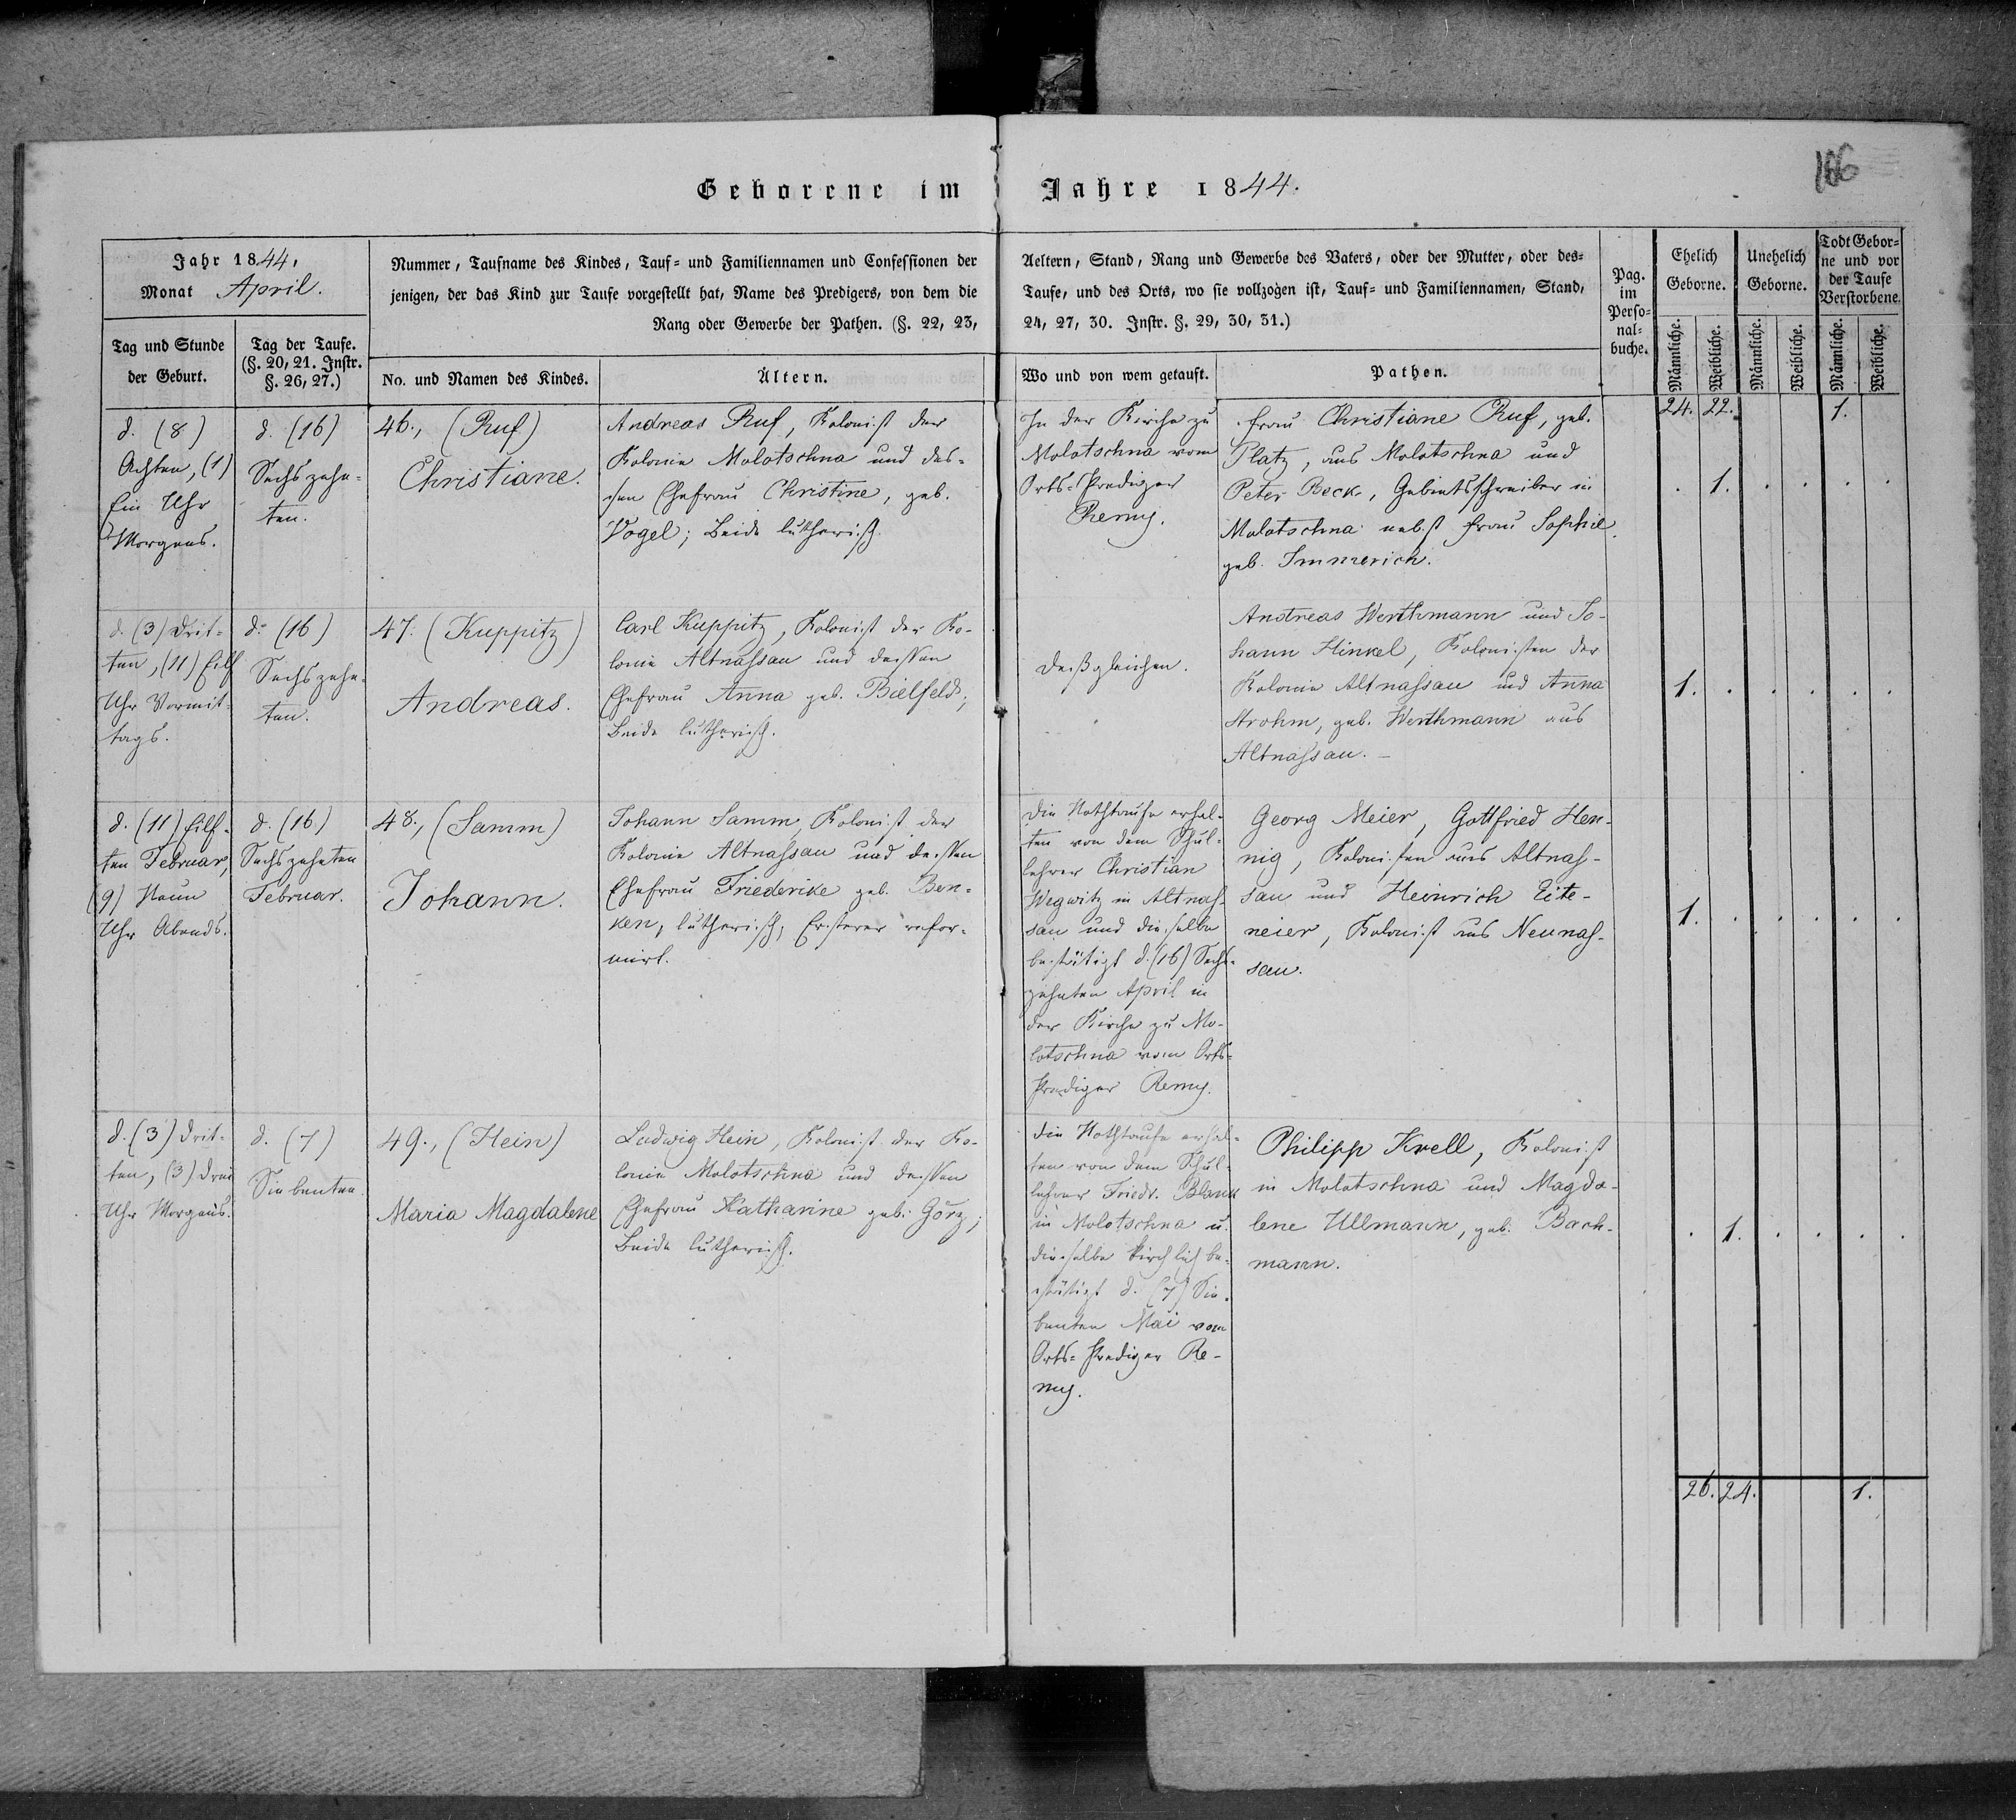 166
Geborene im Jahre 1844.
Jahr 1844.
Monat April.
Nummer, Taufname des Kindes, Tauf= und Familiennamen und Confessionen der
jenigen, der das Kind zur Taufe vorgestellt hat, Name des Predigers, von dem die
Rang oder Gewerbe der Pathen. (§. 22, 23,
Aeltern, Stand, Rang und Gewerbe des Vaters, oder der Mutter, oder des=
Taufe, und des Orts, wo sie vollzogen ist, Tauf= und Familiennamen, Stand,
24, 27, 30. Instr. §. 29, 30, 31.)
Pag.
im
Perso=
nal=
buche.
Ehelich
Geborne.
Unehelich
Geborne.
Todt Gebor=
ne und vor
der Taufe
Verstorbene.
Tag und Stunde
der Geburt.
Tag der Taufe.
(§. 20, 21. Instr.
§. 26, 27.)
No. und Namen des Kindes.
Ältern.
Wo und von wem getauft.
Pathen.
Männliche.
Weibliche.
Männliche.
Weibliche.
Männliche.
Weibliche.
24. 22. 1.
d. (8)
Achten, (1)
Ein Uhr
Morgens.
d. (16)
Sechszehn=
ten.
46., (Ruf)
Christiane.
Andreas Ruf, Kolonist der
Kolonie Molotschna und des=
sen Ehefrau Christine, geb.
Vogel; Beide lutherisch.
In der Kirche zu
Molotschna vom
Orts=Prediger
Remy.
Frau Christiane Ruf, geb.
Platz, aus Molotschna und
Peter Beck, Gebietsschreiber in
Molotschna nebst Frau Sophie
geb. Immerich.
. 1. . . . .
d. (3) Drit=
ten, (11) Eilf
Uhr Vormit=
tags.
d. (16)
Sechszehn=
ten.
47. (Kuppitz)
Andreas.
Carl Kuppitz, Kolonist der Ko=
lonie Altnassau und dessen
Ehefrau Anna geb. Bielfeld;
Beide lutherisch.
Deßgleichen.
Andreas Werthmann und Jo=
hann Hinkel, Kolonisten der
Kolonie Altnassau und Anna
Strohm, geb. Werthmann aus
Altnassau. –
1. . . . . .
d. (11) Eilf=
ten Februar,
(9) Neun
Uhr Abends.
d. (16)
Sechszehnten
Februar.
48., (Samm)
Johann.
Johann Samm, Kolonist der
Kolonie Altnassau und dessen
Ehefrau Friederike geb. Ben=
ken, lutherisch, Ersterer refor=
mirt.
Die Nothtaufe erhal=
ten von dem Schul=
lehrer Christian
Wegwitz in Altnas=
sau und dieselbe
bestätigt d. (16) Sechs=
zehnten April in
der Kirche zu Mo=
lotschna vom Orts=
Prediger Remy.
Georg Meier, Gottfried Hen=
nig, Kolonisten aus Altnas=
sau und Heinrich Eite=
neier, Kolonist aus Neunas=
sau.
1. . . . . .
d. (3) Drit=
ten, (3) Drei
Uhr Morgens.
d. (7)
Siebenten.
49., (Hein)
Maria Magdalene
Ludwig Hein, Kolonist der Ko=
lonie Molotschna und dessen
Ehefrau Katharine geb. Görz;
Beide lutherisch.
Die Nothtaufe erhal=
ten von dem Schul=
lehrer Friedr. Blank
in Molotschna u.
dieselbe kirchlich be=
stätigt d. (7) Sie=
benten Mai vom
Orts=Prediger Re=
my.
Philipp Krell, Kolonist
in Molotschna und Magda=
lene Ullmann, geb. Bach=
mann.
. 1. . . . .
26. 24. 1.